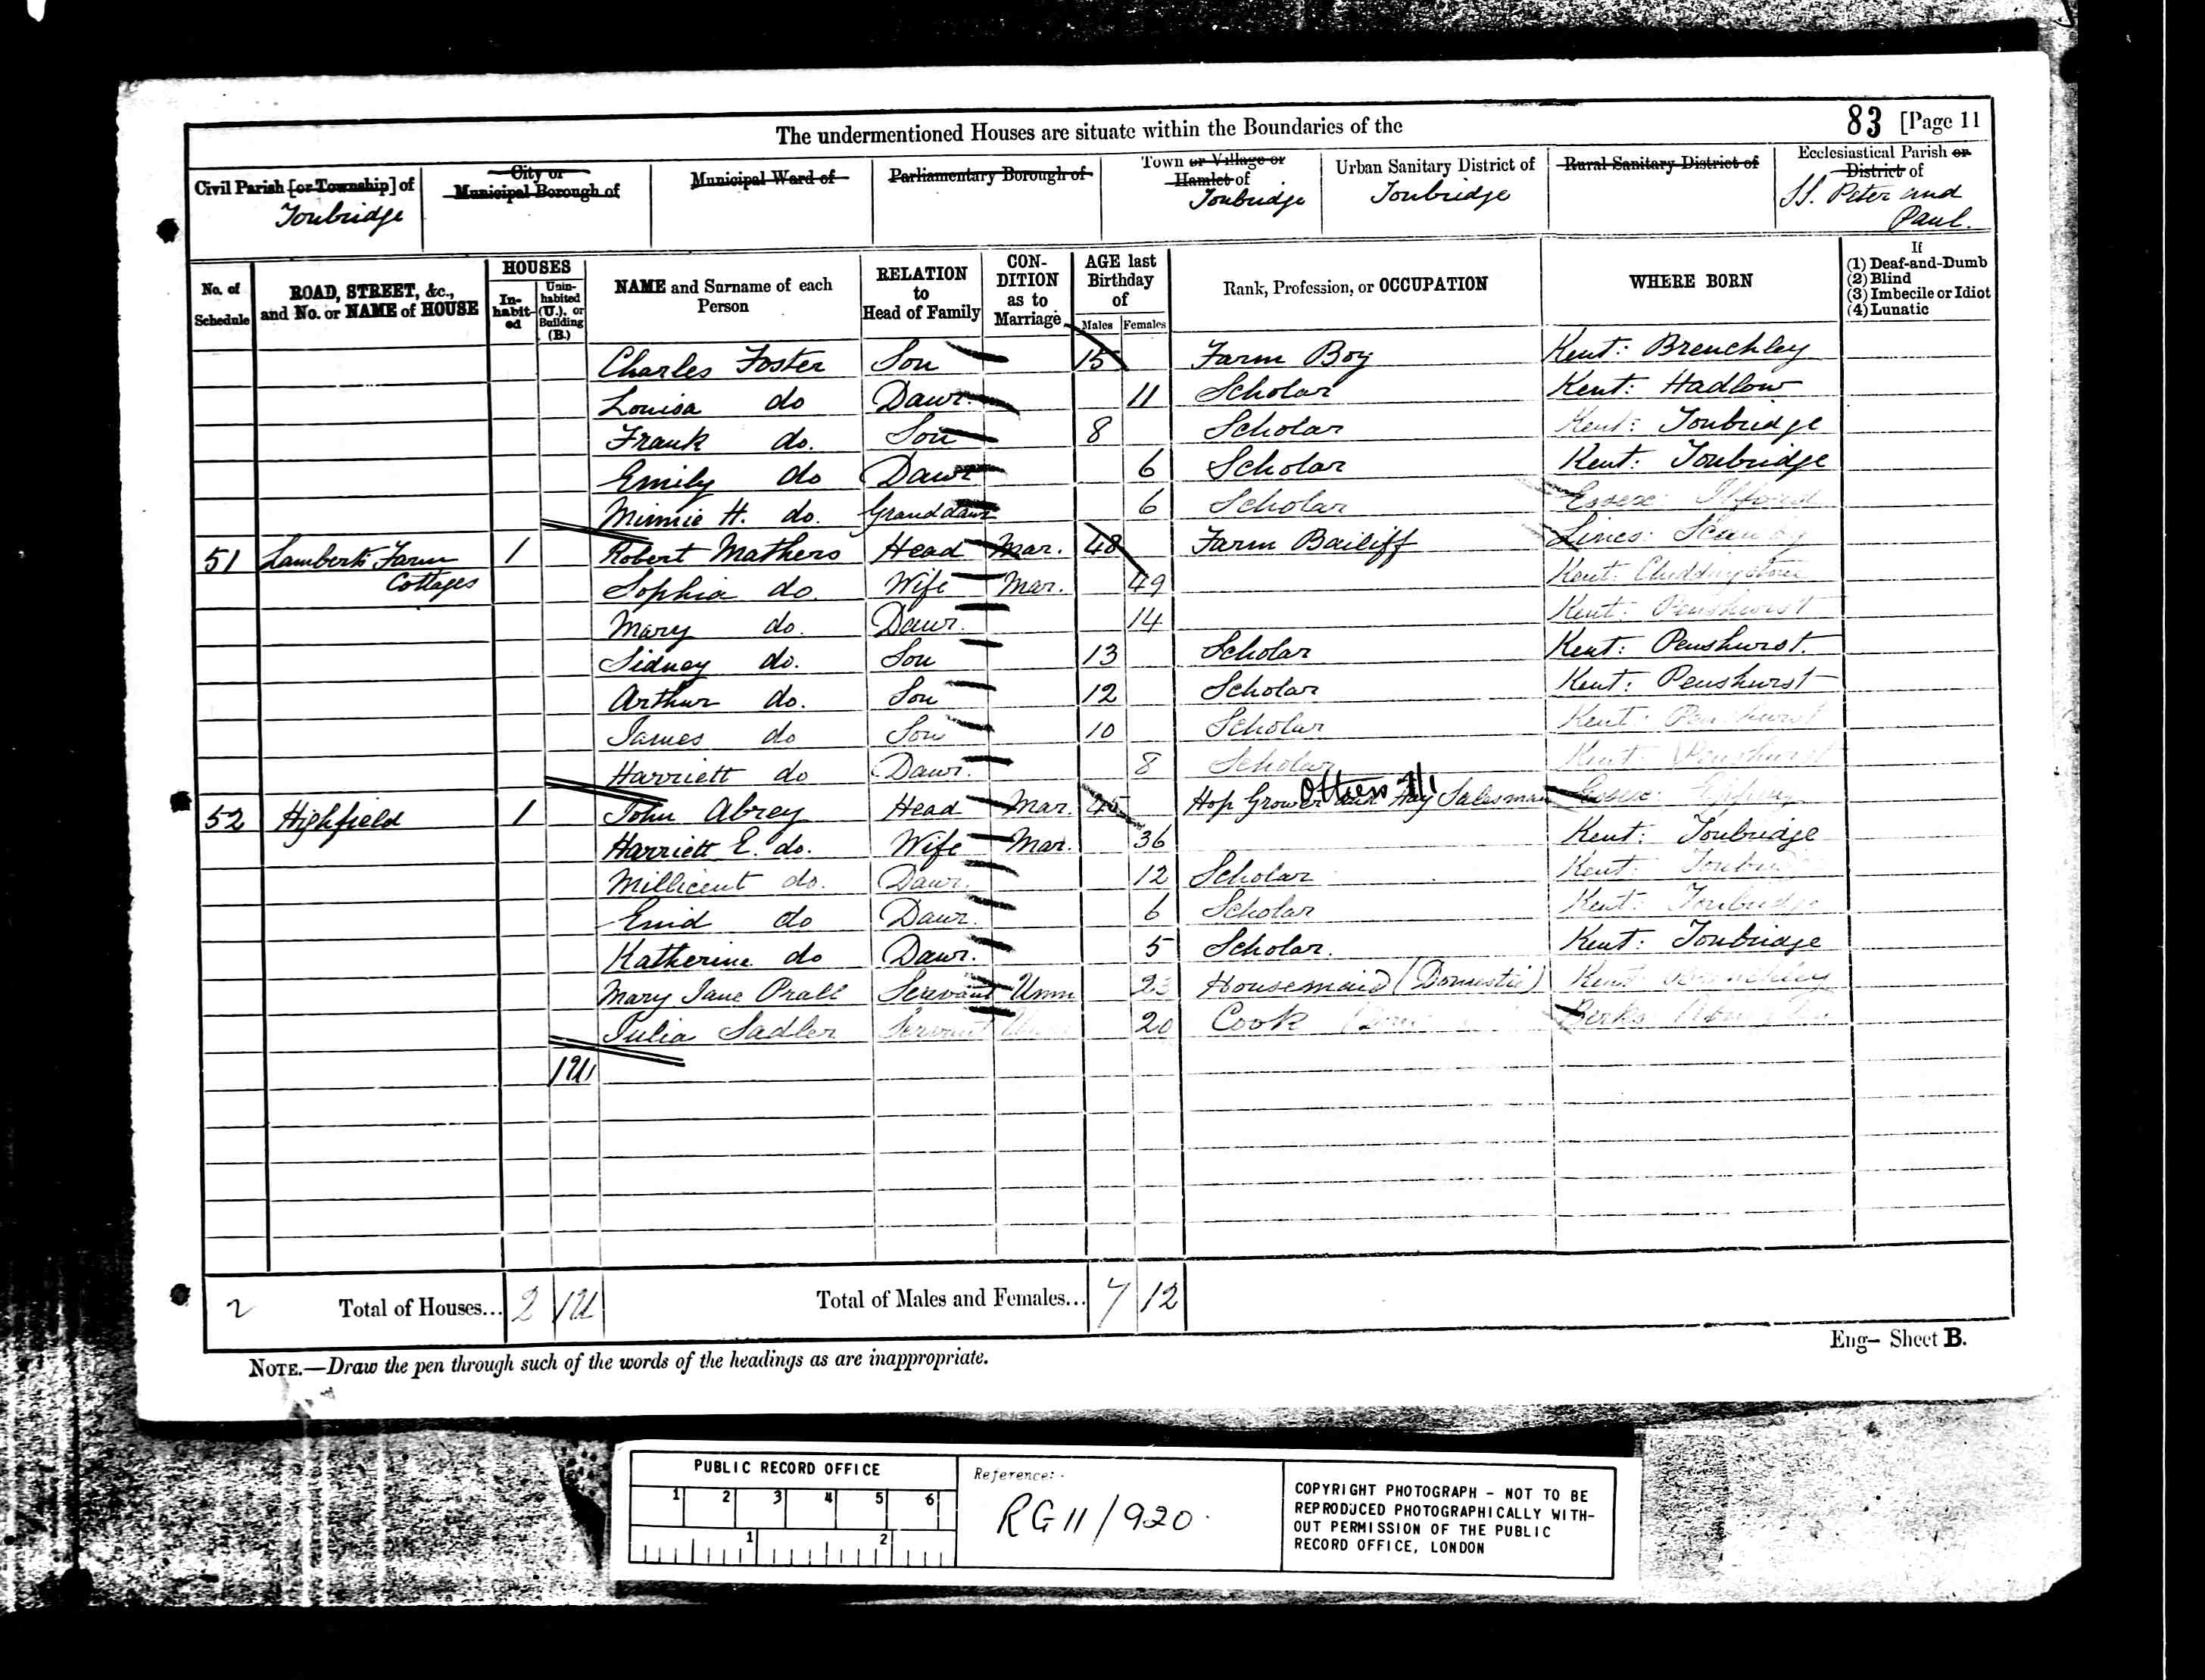 The undermentioned Houses are situate within the Boundaries of the
83 [Page 11
Civil Parish [or Township] of
Tonbridge
City or
Municipal Borough of
Municipal Ward of
Parliamentary Borough of
Town or Village or
Hamlet of
Tonbridge
Urban Sanitary District of
Tonbridge
Rural Sanitary District of
Ecclesiastical Parish or
District of
SS. Peter and
Paul.
No. of
Schedule
ROAD, STREET, &c.,
and No. or NAME of HOUSE
HOUSES
In-
habit-
ed
Unin-
habited
(U.), or
Building
(B.)
NAME and Surname of each
Person
RELATION
to
Head of Family
CON-
DITION
as to
Marriage
AGE last
Birthday
of
Males Females
Rank, Profession, or OCCUPATION
WHERE BORN
If
(1) Deaf-and-Dumb
(2) Blind
(3) Imbecile or Idiot
(4) Lunatic
Charles Foster Son 15 Farm Boy Kent: Brenchley
Louisa do Dawr. 11 Scholar Kent: Hadlow
Frank do. Son 8 Scholar Kent: Tonbridge
Emily do Dawr 6 Scholar Kent: Tonbridge
Minnie H. do. Granddawr 6 Scholar Essex: Ilford
51 Lamberts Farm 1 Robert Mathers Head Mar. 48 Farm Bailiff Lincs:
Cottages Sophia do. Wife Mar. 49 Kent: Chiddingstone
Mary do. Dawr. 14 Kent: Penshurst
Sidney do. Son 13 Scholar Kent: Penshurst.
Arthur do. Son 12 Scholar Kent: Penshurst
James do Son 10 Scholar Kent: Penshurst
Harriett do Dawr. 8 Scholar Kent: Penshurst
Others 1/1
52 Highfield 1 John Abrey Head Mar. 45 Hop Grower and Hay Salesman Essex: Epping
Harriett E. do. Wife Mar. 36 Kent: Tonbridge
Millicent do. Dawr. 12 Scholar Kent: Tonbridge
Enid do Dawr. 6 Scholar Kent: Tonbridge
Katherine do Dawr. 5 Scholar. Kent: Tonbridge
Mary Jane Prall Servant Unm 23 Housemaid (Domestic) Kent Brenchley
Julia Sadler Servant 20 Cook Berks
1U
2 Total of Houses... 2 1U Total of Males and Females... 7 12
Eng- Sheet B.
NOTE.—Draw the pen through such of the words of the headings as are inappropriate.
PUBLIC RECORD OFFICE
1 2 3 4 5 6
1 2
Reference:-
RG 11/920.
COPYRIGHT PHOTOGRAPH - NOT TO BE
REPRODUCED PHOTOGRAPHICALLY WITH-
OUT PERMISSION OF THE PUBLIC
RECORD OFFICE, LONDON